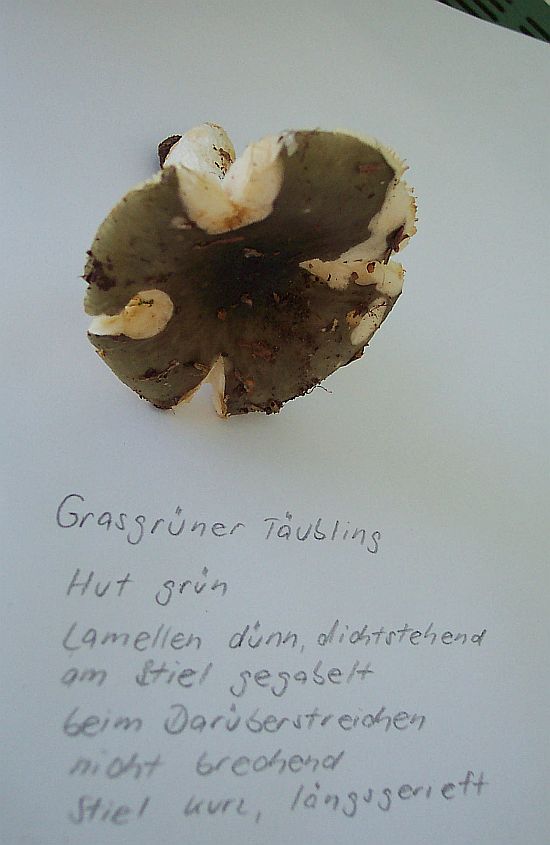 Grasgrüner Täubling
Hut grün
Lamellen dünn, dichtstehend
am Stiel gegabelt
beim Darüberstreichen
nicht brechend
Stiel kurz, längsgerieft